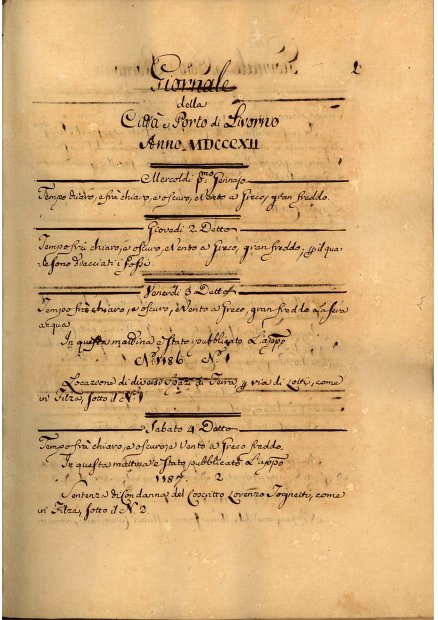 1
Giornale
della
Città e Porto di Livorno
Anno MDCCCXII
Mercoldì p.mo Gennajo
Tempo frà chiaro, e oscuro, e Vento a Greco, gran freddo.
Giovedì 2 Detto
Tempo frà chiaro, e oscuro, e Vento a Greco, gran freddo; p il qua
le sono diacciati i Fossi
Venerdì 3 Detto
Tempo frà chiaro, e oscuro, e Vento a Greco, gran freddo e la sera
acqua
In questa mattina è stato pubblicato L'appo
N.o 1186 N.o 1
Locazione di diversi Spazi di Terra, p via di Lotti, come
in Filza, sotto il N.o 1
Sabato 4 Detto
Tempo frà chiaro, e oscuro, e Vento a Greco freddo.
In questa mattina è stato pubblicato L'appo
1187 2
Sentenza di Condanna del Coscritto Lorenzo Tognetti, come
in Filza, sotto il N. 2.